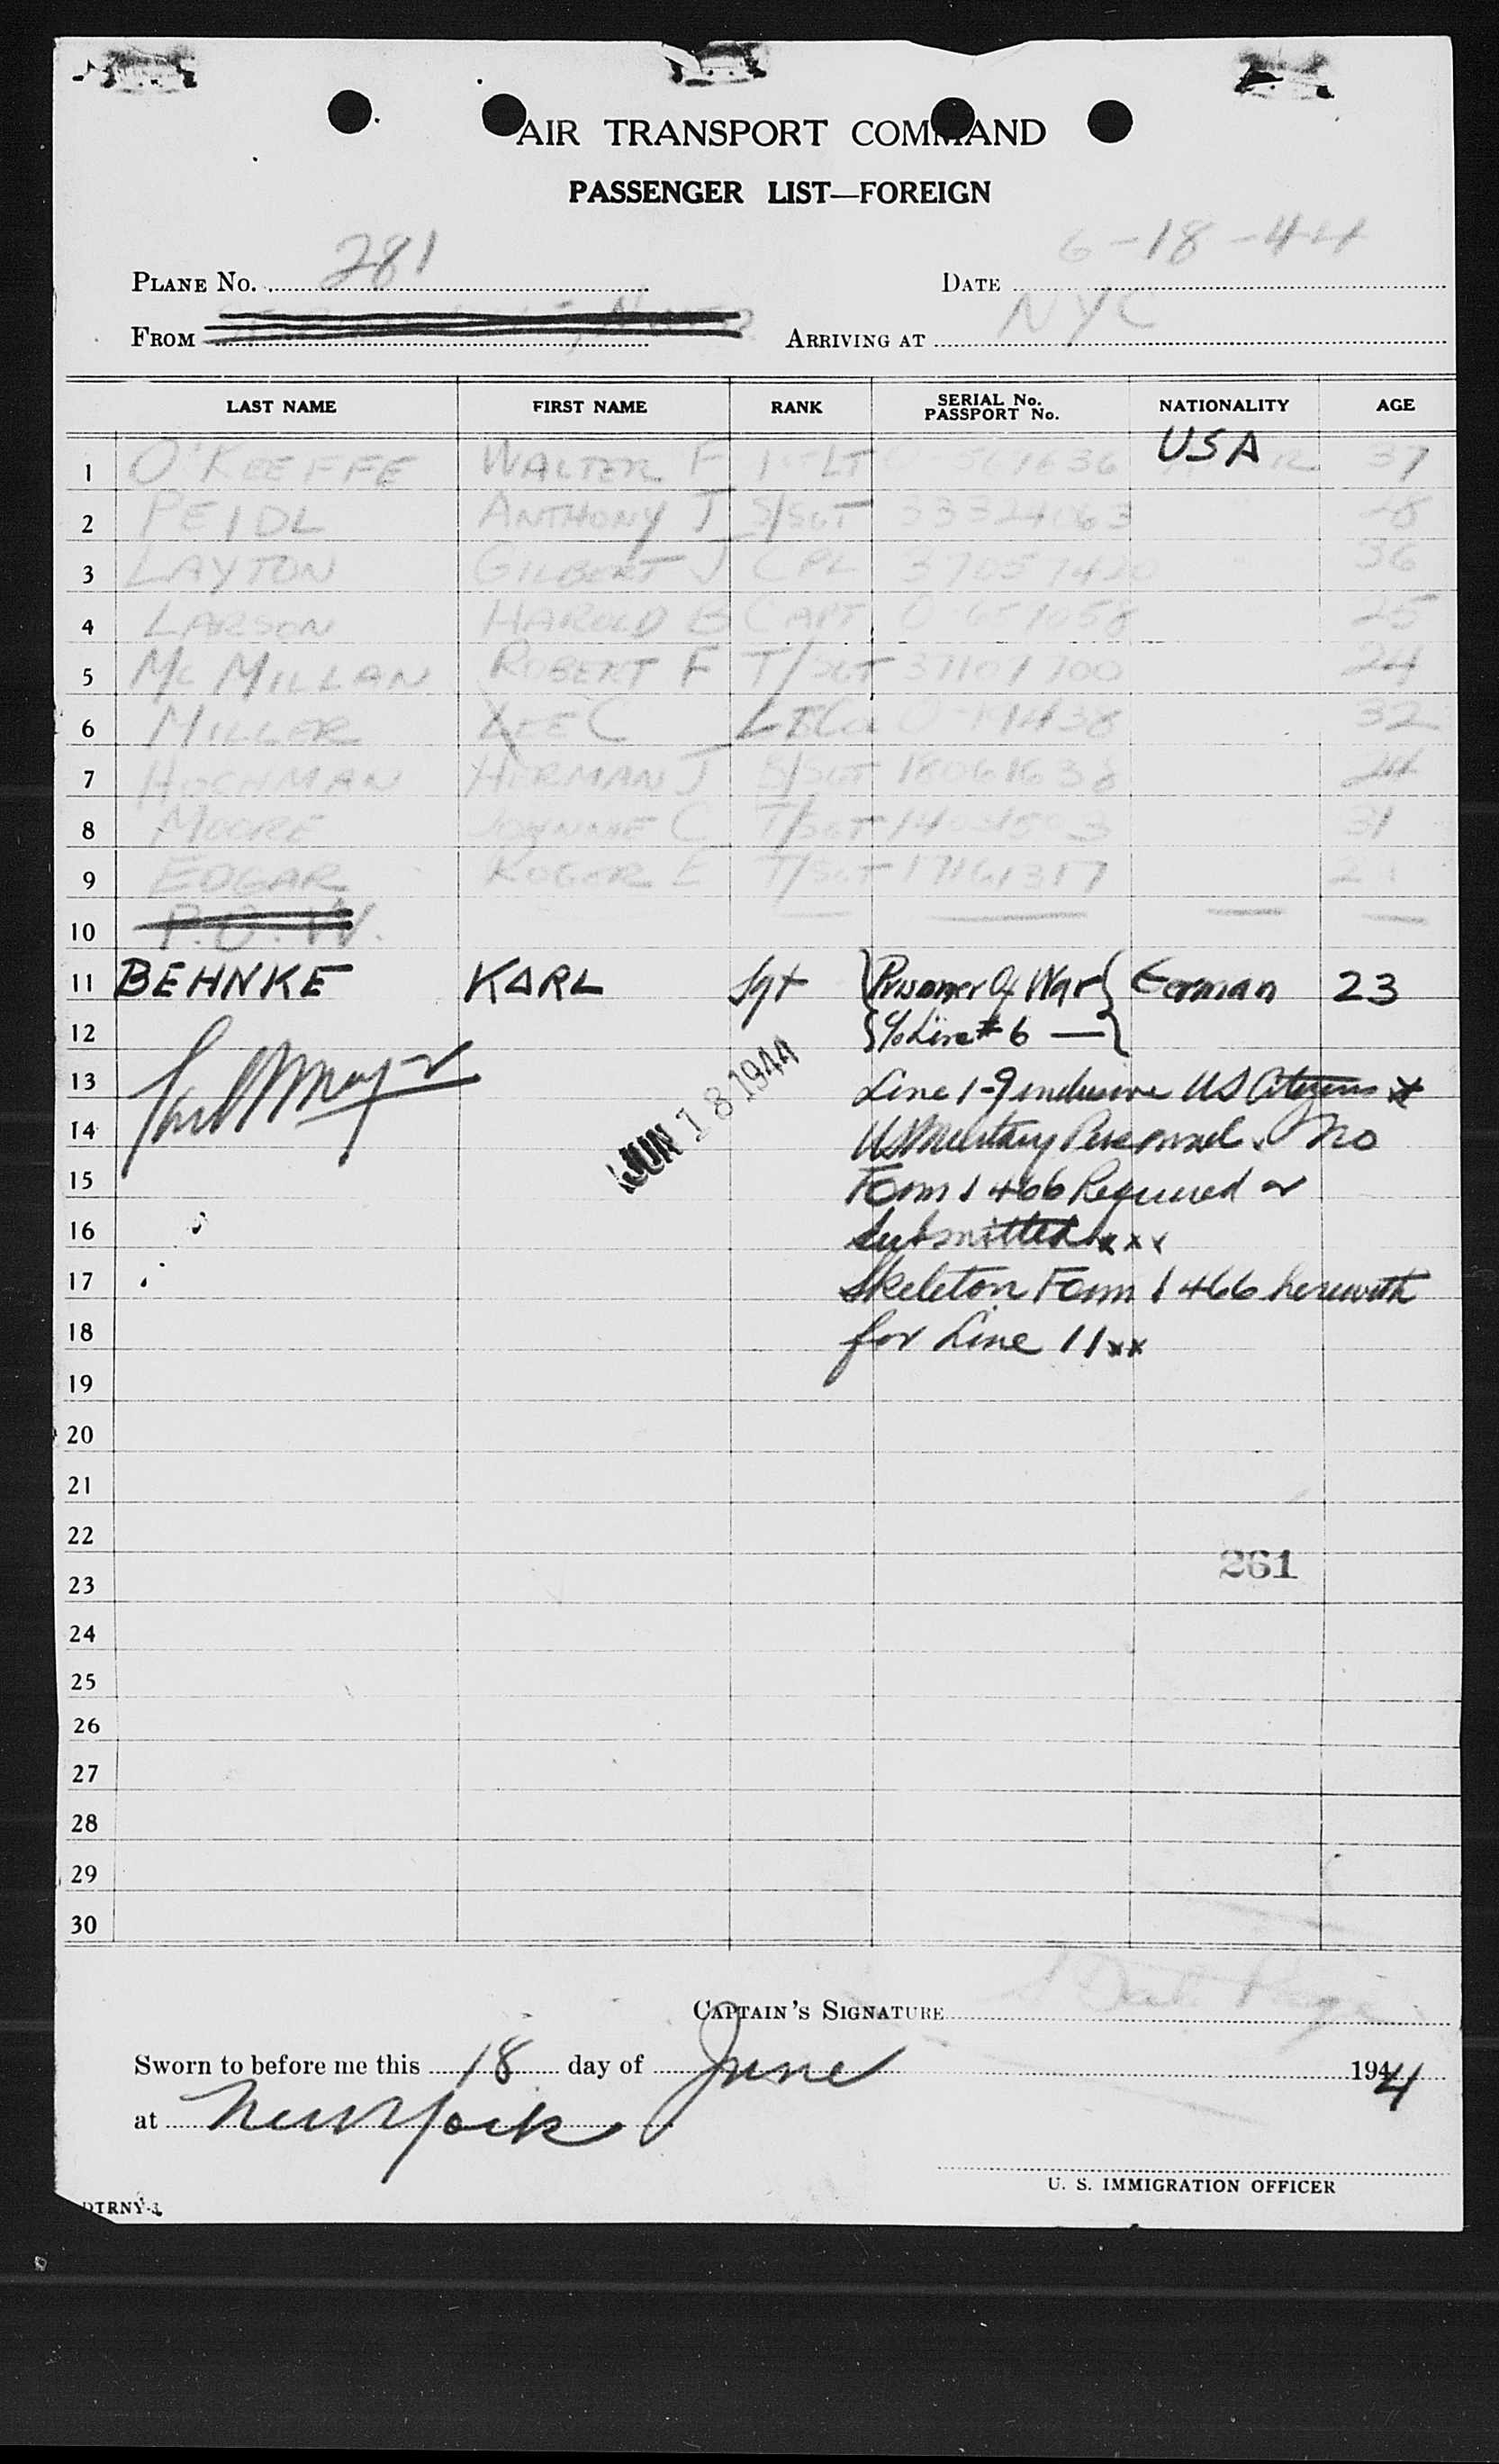 AIR TRANSPORT COMMAND
PASSENGER LIST—FOREIGN
PLANE No. 281 DATE 6-18-44
FROM ARRIVING AT NYC
LAST NAME FIRST NAME RANK SERIAL No. PASSPORT No. NATIONALITY AGE
1 O'KEEFFE WALTER F 1st LT USA 37
2 PEIDL ANTHONY J S/SGT 33324063
3 LAYTON GILBERT J CPL 36
4 LARSON HAROLD B CAPT 25
5 Mc MILLAN ROBERT F T/SGT 24
6 MILLER LEE C 32
7 HOCHMAN HERMAN J S/SGT 24
8 MOORE JOHNNIE C T/SGT 31
9 EDGAR ROGER E T/SGT 17161317
10 P.O.W.
11 BEHNKE KARL Sgt Prisoner Of War German 23
12 % Line # 6 —
13 Line 1-9 inclusive US Citizens
JUN 18 1944
14 US Military Personnel. No
15 Form 1466 Required or
16 Submitted xxx
17 Skeleton Form 1466 herewith
18 for Line 11 xx
19
20
21
22
261
23
24
25
26
27
28
29
30
CAPTAIN'S SIGNATURE
Sworn to before me this 18 day of June 1944
at New York
U. S. IMMIGRATION OFFICER
DTRNY-3